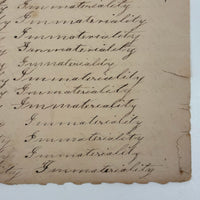 Immateriality
Immateriality
Immateriality
Immateriality
Immateriality
Immateriality
Immateriality
Immateriality
Immateriality
Immateriality
Immateriality
Immateriality